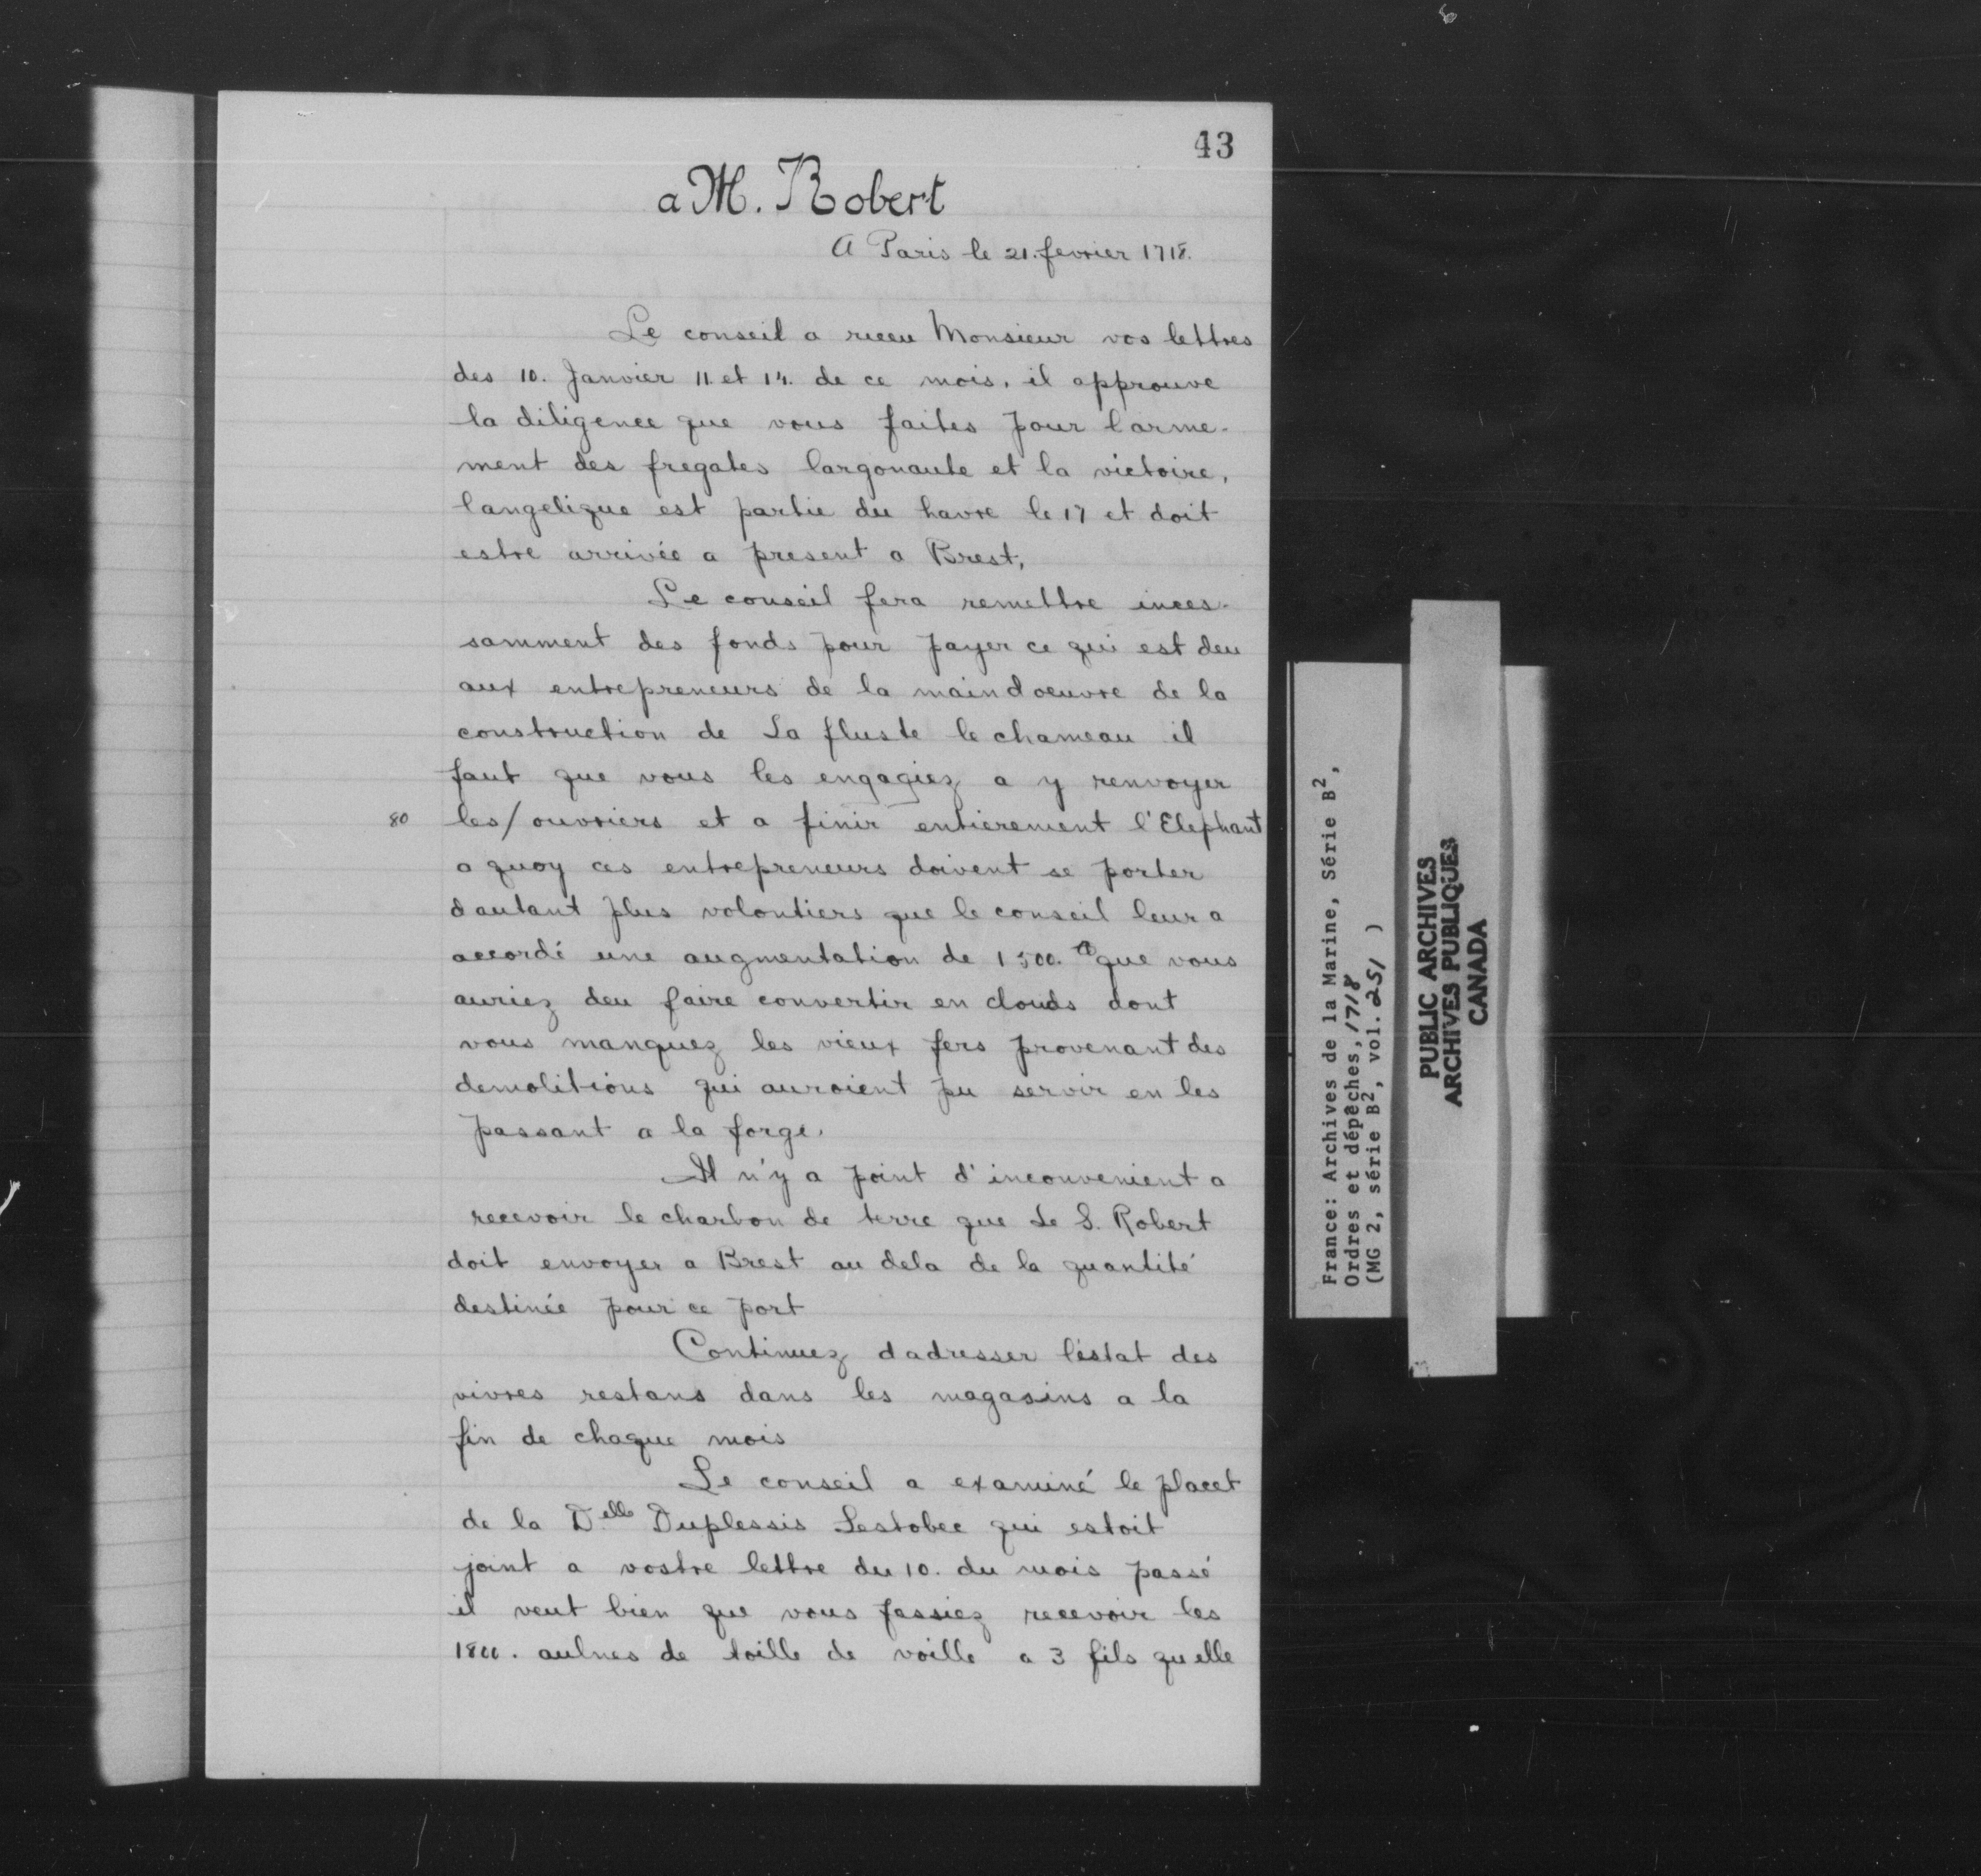 43
a M. Robert
A Paris le 21. fevrier 1718.
Le conseil a receu Monsieur vos lettres
des 10. Janvier 11 et 14. de ce mois, il approuve
la diligence que vous faites pour l'arme-
ment des fregates largonaute et la victoire,
langelique est partie du havre le 17 et doit
estre arrivée a present a Brest,
Le conseil fera remettre inces-
samment des fonds pour payer ce qui est deu
aux entrepreneurs de la maindoeuvre de la
construction de La fluste le chameau il
faut que vous les engagiez a y renvoyer
80 les/ouvriers et a finir entierement l'Elephant
a quoy ces entrepreneurs doivent se porter
dautant plus volontiers que le conseil leur a
accordé une augmentation de 1500. que vous
auriez deu faire convertir en clouds dont
vous manquez les vieux fers provenant des
demolitions qui auroient pu servir en les
passant a la forge.
Il n'y a point d'inconvenient a
recevoir le charbon de terre que Le S. Robert
doit envoyer a Brest au dela de la quantité
destinée pour ce port
Continuez dadresser l'estat des
vivres restans dans les magasins a la
fin de chaque mois
Le conseil a examiné le placet
de la Delle Duplessis Lestobec qui estoit
joint a vostre lettre du 10. du mois passé
il veut bien que vous fassiez recevoir les
1800. aulnes de toille de voille a 3 fils qu elle
France: Archives de la Marine, Série B2,
Ordres et dépêches, 1718
(MG 2, série B2, vol. 251 )
PUBLIC ARCHIVES
ARCHIVES PUBLIQUES
CANADA